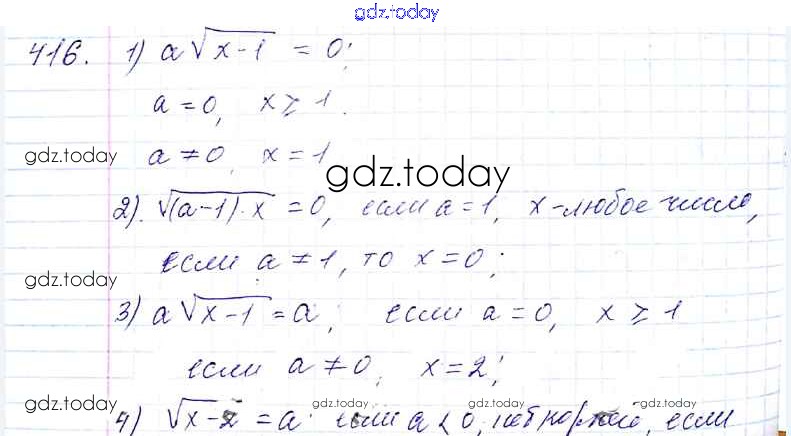 gdz.today
416. 1) a√(x-1) = 0;
a = 0, x ≥ 1.
gdz.today a ≠ 0, x = 1
gdz.today
2). √((a-1)·x) = 0, если a = 1, x - любое число,
если a ≠ 1, то x = 0;
gdz.today
3) a√(x-1) = a; если a = 0, x ≥ 1
если a ≠ 0, x = 2;
gdz.today gdz.today gdz.today gdz.today
4) √(x-2) = a. если a < 0, нет корней, если